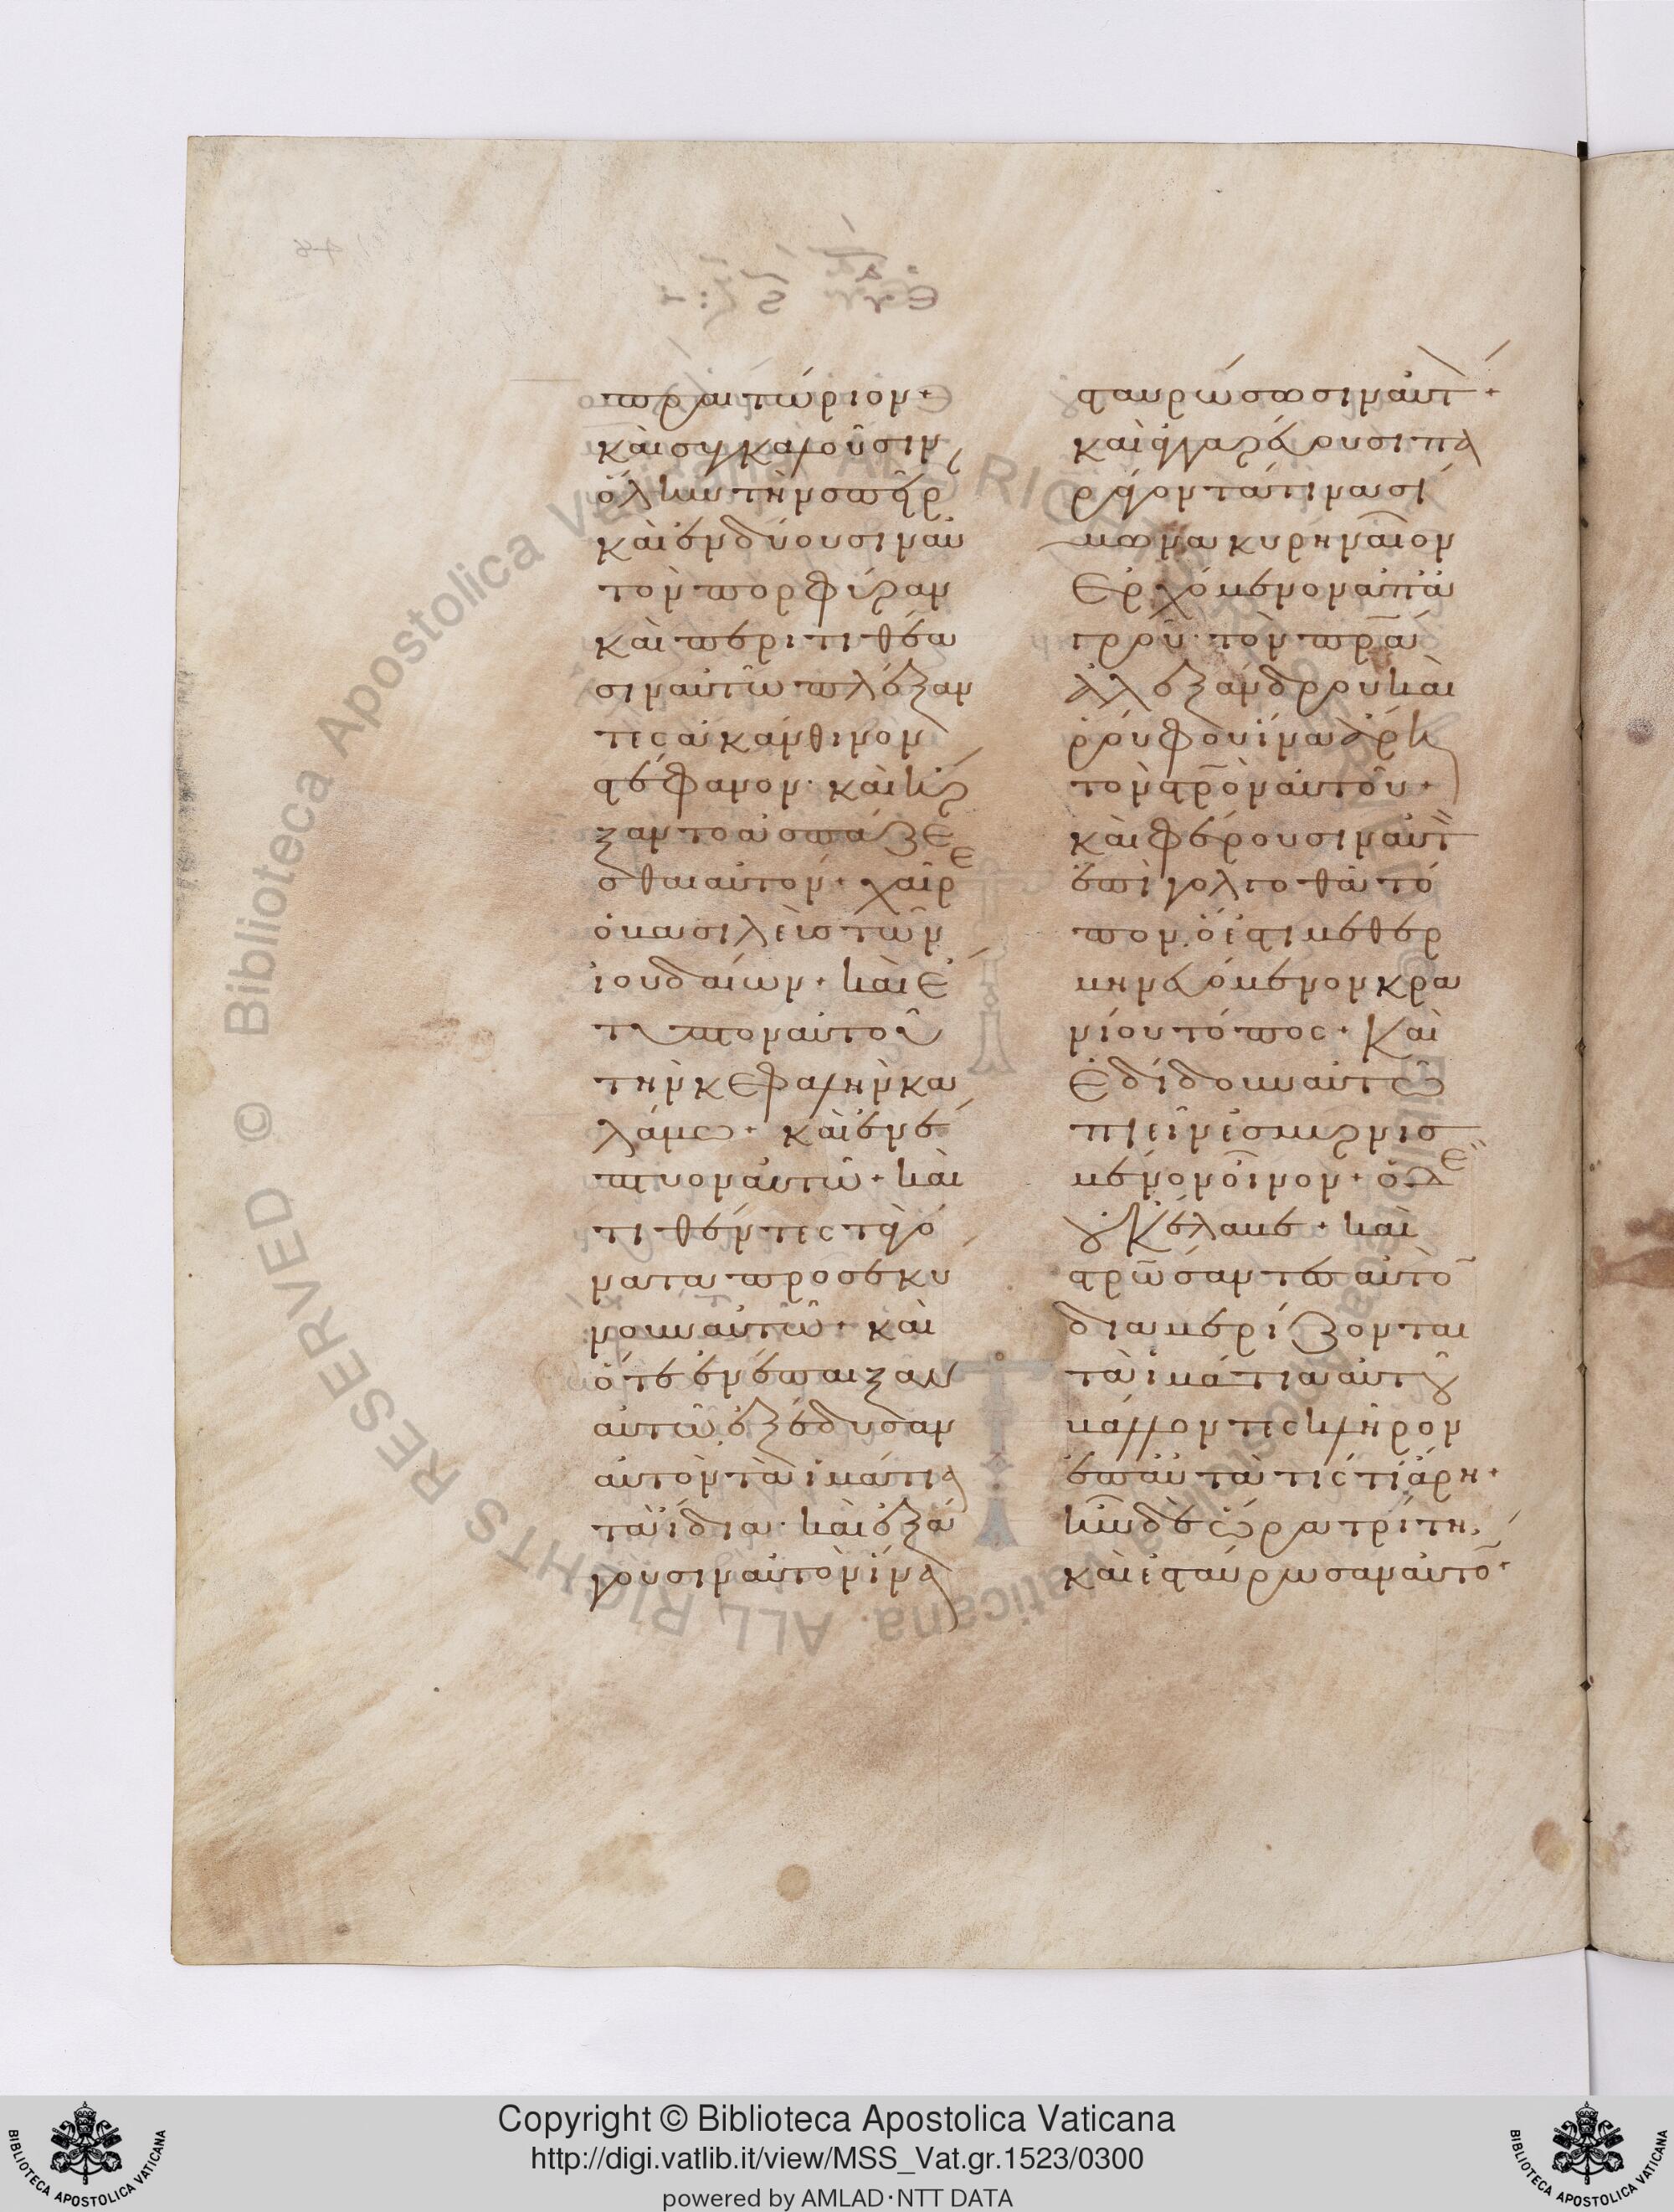 πραιτώριον·
καὶ συγκαλοῦσιν
ὅλην τὴν σπεῖρ
καὶ ἐνδύουσιν αὐ
τὸν πορφύραν
καὶ περιτιθέα
σιν αὐτῶ πλέξαν
τες ἀκάνθινον
στέφανον· καὶ ἤρ
ξαντο ἀσπάζε
σθαι αὐτόν· χαῖρε
ὁ βασιλεὺς τῶν
ἰουδαίων· καὶ ἔ
τυπτον αὐτοῦ
τὴν κεφαλὴν κα
λάμω· καὶ ἐνέ
πτυον αὐτῶ· καὶ
τιθέντες τὰ γό
νατα προσεκύ
νουν αὐτῶ· καὶ
ὅτε ἐνέπαιξαν
αὐτῶ, ἐξέδυσαν
αὐτὸν τὰ ἱμάτια
τὰ ἴδια· καὶ ἐξά
γουσιν αὐτὸν ἵνα
σταυρώσωσιν αὐτ·
καὶ ἀγγαρεύουσι πα
ράγοντά τινα σί
μωνα κυρηναῖον
ἐρχόμενον ἀπ' ἀ
γροῦ· τὸν πρα
ἀλεξάνδρου καὶ
ῥούφου ἵνα ἄρη
τὸν στρον αὐτοῦ·
καὶ φέρουσιν αὐτ
ἐπὶ γολγοθᾶ τό
πον, ὅ ἐστι μεθερ
μηνευόμενον κρα
νίου τόπος· Καὶ
ἐδίδουν αὐτῶ
πιεῖν ἐσμυρνισ
μένον οἶνον· ὁ δὲ
οὐκ ἔλαβε· καὶ
στρώσαντες αὐτὸ
διαμερίζονται
τὰ ἱμάτια αὐτοῦ
βάλλοντες κλῆρον
ἐπ' αὐτὰ τίς τί ἄρη·
ἦν δὲ ὥρα τρίτη,
καὶ ἐσταύρωσαν αὐτό·
Copyright © Biblioteca Apostolica Vaticana
http://digi.vatlib.it/view/MSS_Vat.gr.1523/0300
powered by AMLAD·NTT DATA
BIBLIOTECA APOSTOLICA VATICANA
BIBLIOTECA APOSTOLICA VATICANA